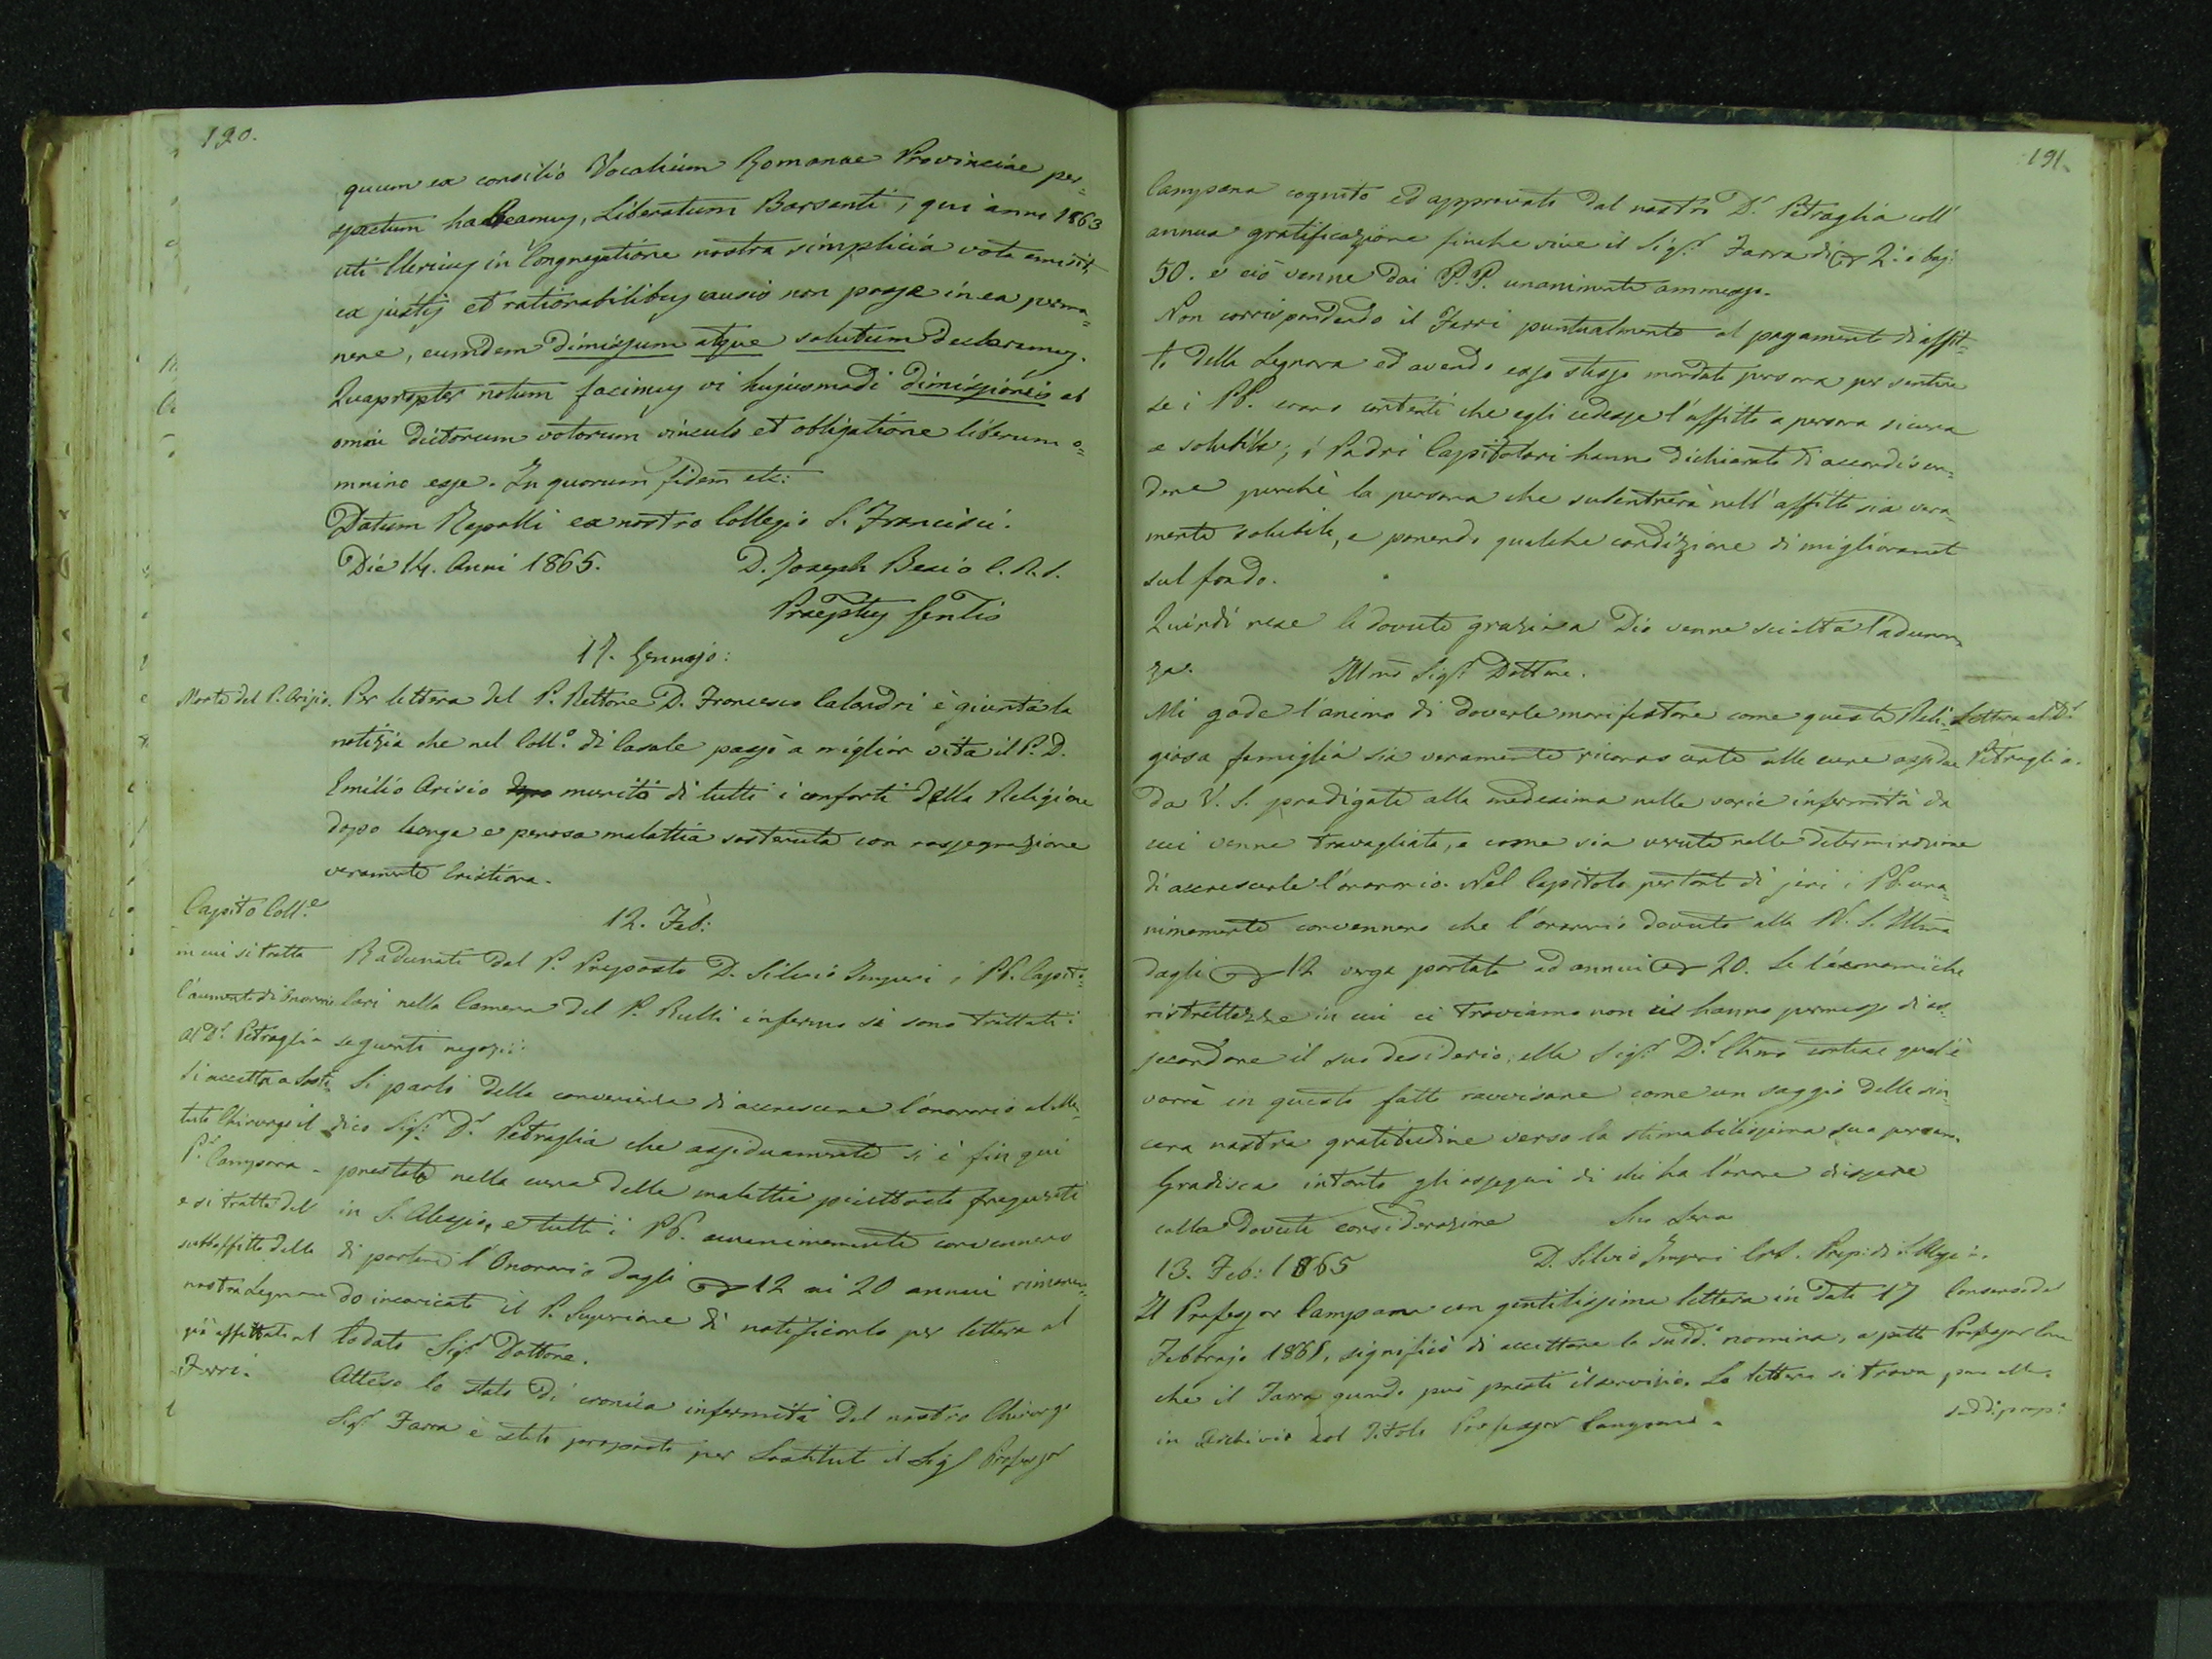 190.
quum ex consilio Vocalium Romanae Provinciae per=
spectum habeamus, Liberatum Barsanti, qui anno 1863
uti Clericus in Congregatione nostra simplicia vota emisit,
ex justis et rationabilibus causis non posse in ea perma=
nere, eumdem dimissum atque solutum declaramus.
Quapropter notum facimus vi hujusmodi dimissionis ab
omni dictorum votorum vinculo et obligatione liberum o=
mnino esse. In quorum fidem etc:
Datum Rapalli ex nostro Collegio S. Francisci.
Die 14. Anni 1865. D. Joseph Besio C.R.S.
Praeptus Gen.lis
17. Gennajo:
Morte del P. Arisio.
Per lettera del P. Rettore D. Francesco Calandri è giunta la
notizia che nel Coll.o di Casale passò a miglior vita il P. D.
Emilio Arisio munito di tutti i conforti della Religione
dopo lunga e penosa malattia sostenuta con rassegnazione
veramente Cristiana.
Capito Coll.e
in cui si tratta
l'aumento di Onorario
al D.r Petraglia
Si accetta a Sosti
tuto Chirurgo il
P.r Campana -
e si tratta del
subaffitto della
nostra Legnara
già affittata al
Ferri.
12. Feb:
Radunati dal P. Preposto D. Silvio Imperi i PP. Capito=
lari nella Camera del P. Rulli infermo si sono trattati i
seguenti negozii:
Si parlò della convenienza di accrescere l'onorario al Me=
dico Sig.r D.r Petraglia che assiduamente si è fin qui
prestato nella cura delle malattie piuttosto frequenti
in S. Alessio, e tutti i PP. unanimemente convennero
di portare l'Onorario dagli 12 ai 20 annui rimanen=
do incaricato il P. Superiore di notificarlo per lettera al
lodato Sig.r Dottore.
Atteso lo stato di cronica infermità del nostro Chirurgo
Sig.r Farra è stato proposto per Sostituto il Sig.r Professor
191.
Campana cognito ed approvato dal nostro D.r Petraglia coll'
annua gratificazione finche vive il Sig.r Farra di 2: e baj:
50. e ciò venne dai P.P. unanimente ammesso.
Non corrispondendo il Ferri puntualmente al pagamento di affit=
to della Legnara ed avendo esso stesso mandato persona per sentire
se i PP. erano contenti che egli cedesse l'affitto a persona sicura
e solubile; i Padri Capitolari hanno dichiarato di accondiscen=
dere purchè la persona che subentrerà nell'affitto sia vera=
mente solubile, e ponendo qualche condizione di miglioramento
sul fondo.
Quindi rese le dovute grazie a Dio venne sciolta l'adunan=
za. Illmo Sig.r Dottore.
Mi gode l'animo di doverle manifestare come questa Reli=
giosa famiglia sia veramente riconoscente alle cure assidue
da V. S. prodigate alla medesima nelle varie infermità da
cui venne travagliata, e come sia venuta nella determinazione
di accrescerle l'onorario. Nel Capitolo pertanto di jeri i PP. una=
nimemente convennero che l'onorario dovuto alla V. S. Illma
dagli 12 venga portato ad annui 20. Se l'economiche
ristrettezze in cui ci troviamo non ci hanno permesso di as=
secondare il suo desiderio, ella Sig.r D.r Chmo cortese qual'è
vorrà in questo fatto ravvisare come un saggio della sin=
cera nostra gratitudine verso la stimabilissima sua persona.
Gradisca intanto gli ossequi di chi ha l'onore di essere
colla dovuta considerazione Suo Servo
13. Feb: 1865 D. Silvio Imperi CRS. Prep: di S. Alessio.
Lettera al D.r
Petraglia.
Il Professor Campana con gentilissima lettera in data 17
Febbrajo 1865, significò di accettare la sudd.a nomina, a patto
che il Farra quando può presti il servizio. La lettera si trova
in Archivio col Titolo Professor Campana.
Consenso del
Professor Cam
pana alla
sudd. prop: